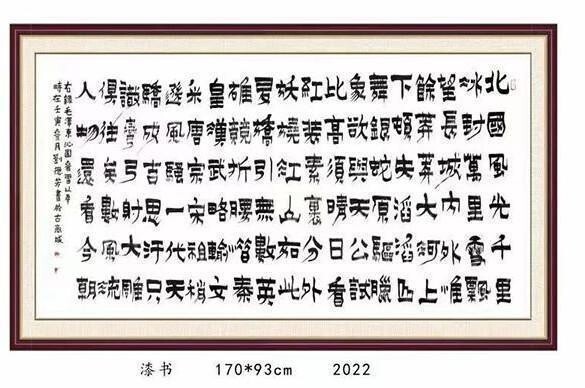 北國風光千里
冰封萬里雪飄
望長城內外惟
餘莽莽大河上
下頓失滔滔山
舞銀蛇原驅臘
象欲與天公試
比高須晴日看
紅裝素裹分外
妖嬈江山如此
多嬌引無數英
雄競折腰惜秦
皇漢武略輸文
采唐宗宋祖稍
遜風騷一代天
驕成吉思汗只
識彎弓射大雕
俱往矣數風流
人物還看今朝
右錄毛澤東沁園春雪
時在壬寅月劉芳書於古城
漆书 170*93cm 2022